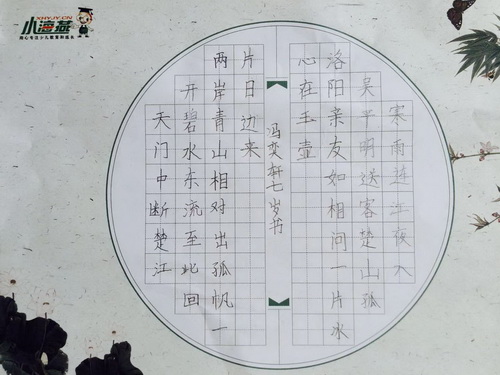 XHYJY.CN
小海燕
天门中断楚江
开碧水东流至此回
两岸青山相对出孤帆一
片日边来
冯奕轩七岁书
寒雨连江夜入
吴平明送客楚山孤
洛阳亲友如相问一片冰
心在玉壶